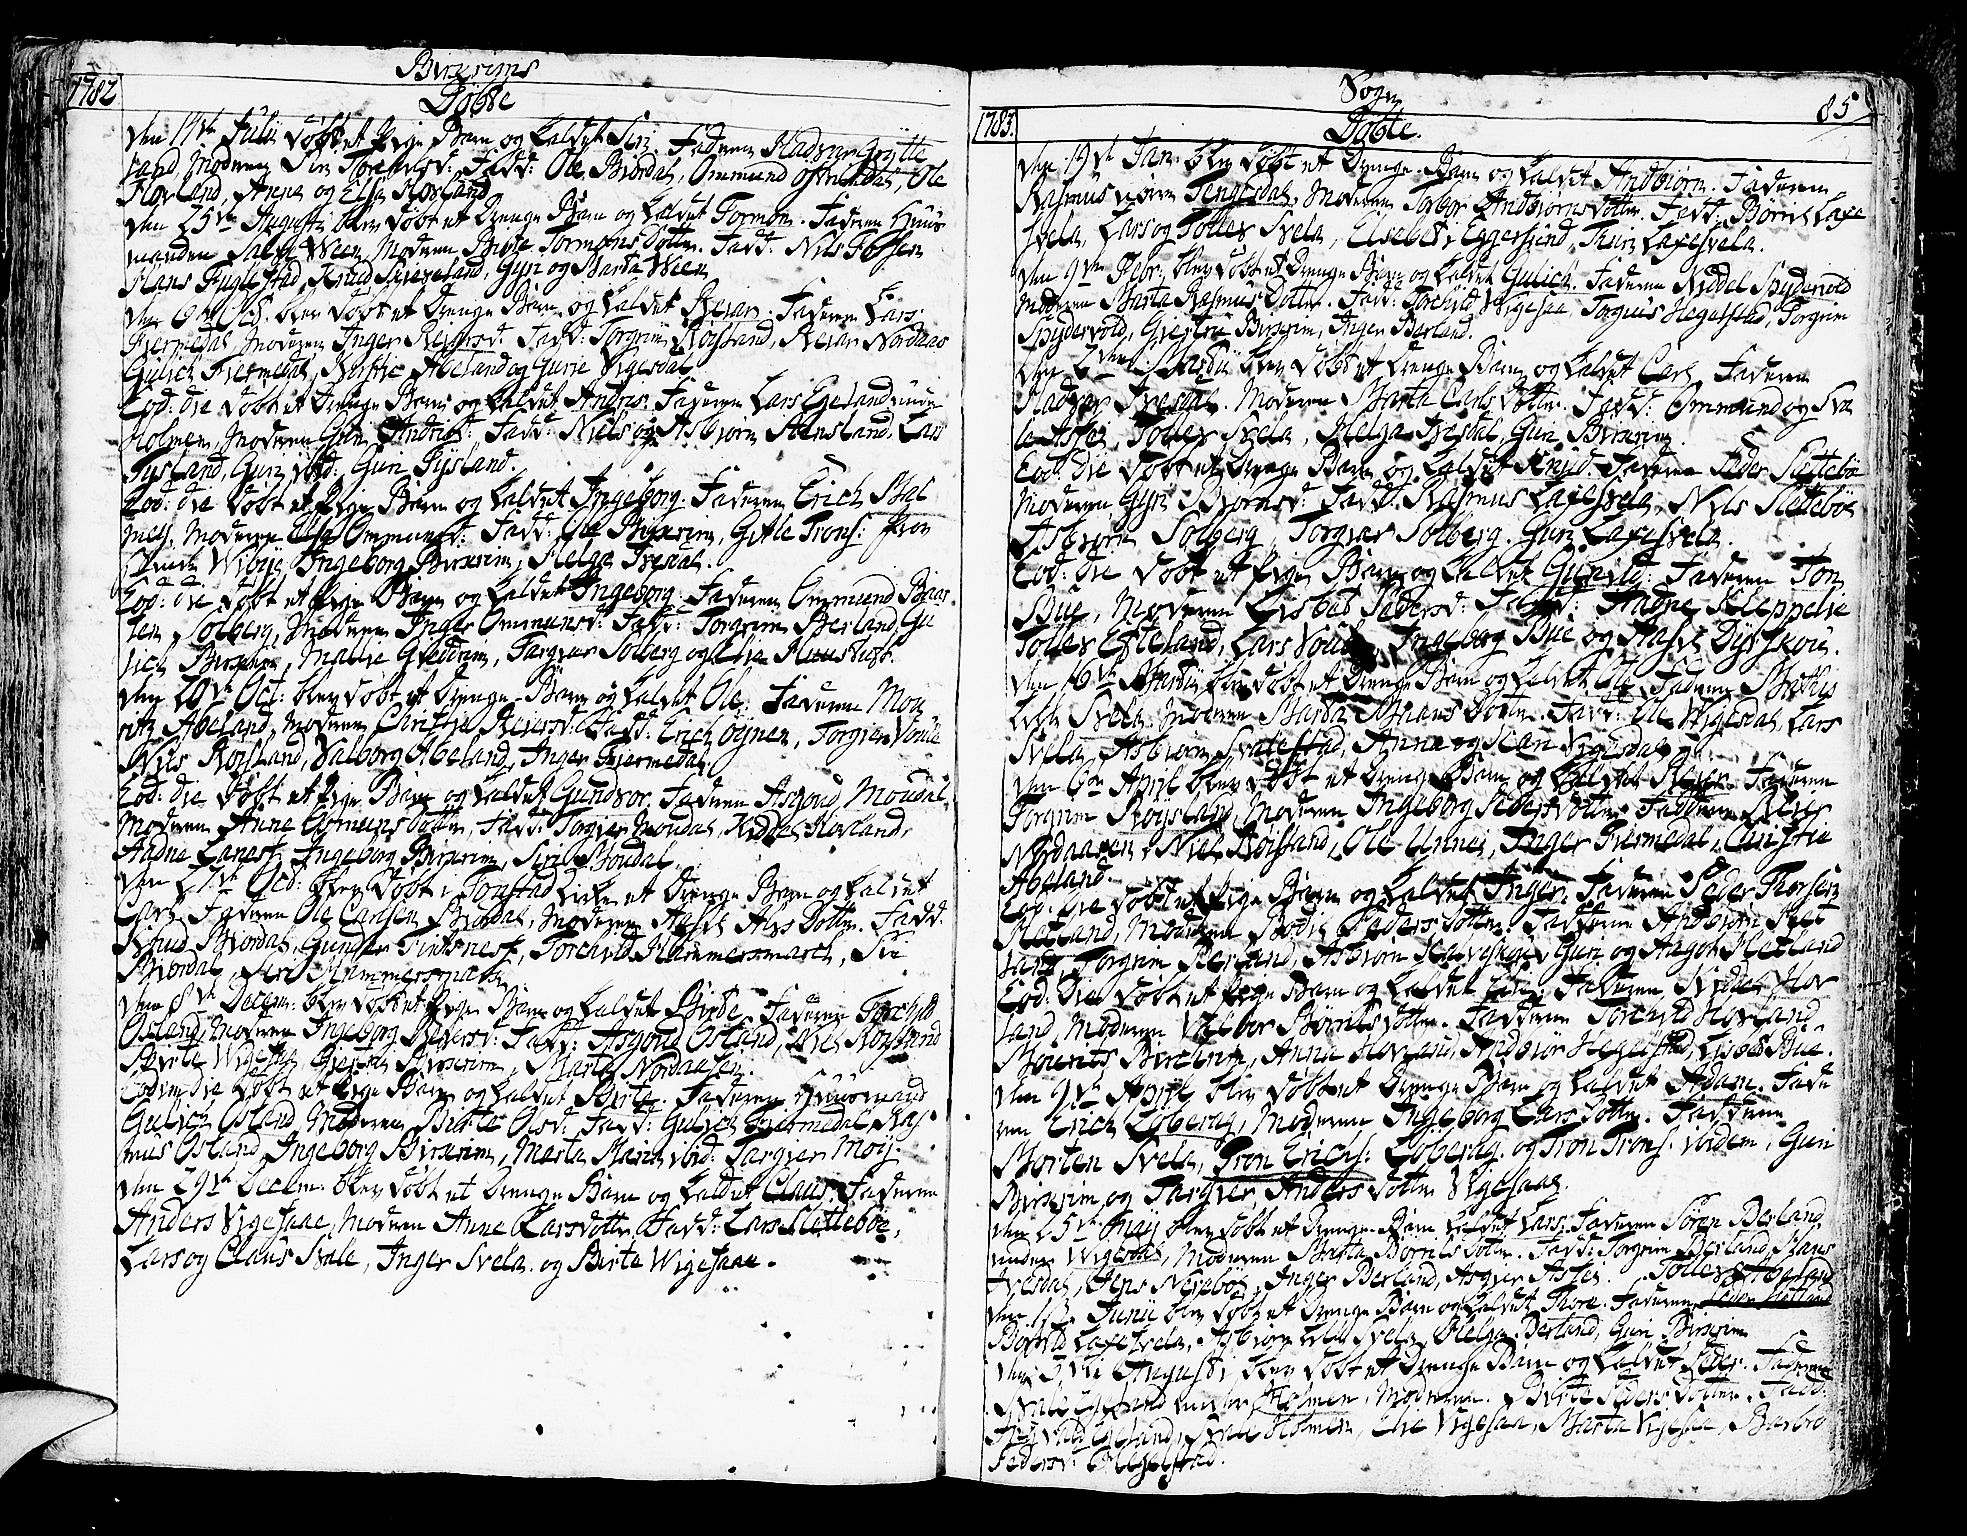 1782
Birxrims
Döbte
Den 17de Julii döbt et Pige Barn og kaldet Siri. Faderen Hadvar Grytte
land, Moderen Siri Torchelsd: Fadd: Ole Biordal, Ommund Ousendal, Ole
Hovland, Anna og Elsa Hovland
Den 25de Augusti blev döbt et Drenge Barn og kaldet Tormon. Faderen Huus
manden Salve Ween, Moderen Birte Tormons Dotter. Fadd: Nils
Hans Fuglestad, Knud Svaaeland, Gyri og Marta Ween
Den 6te Oct: blev döbt et Drenge Barn og kaldet Reiar. Faderen Lars
Fiermedal, Moderen Inger Reiersd: Fadd: Torgrim Röysland, Reiar Nordaas
Gulich Fiermedal, Kirstie Abeland og Gurie Vigesdal
Eod: die döbt et Drenge Barn og kaldet Andris. Faderen Lars Egeland under
Holmen, Moderen Guri Andrisd: Fadd: Niels og Asbiorn Stensland, Lars
Tysland, Guri ibid: Guri Tysland.
Eod: die döbt et Pige Barn og kaldet Ingeborg. Faderen Erich Mal
mey, Moderen Elsa Ommunsd: Fadd: Ole Birxrim, Gitle Trons: fron
Wiborg Ingeborg Birxrim, Helga Ivesdal.
Eod: die döbt et Pige Barn og kaldet Ingeborg. Faderen Ommund Baar
sen Solberg, Moderen Inger Ommunsd: Fadd: Torgrim Berland, Gu
lich Birxrim, Malie Giedrem, Targier Solberg og Else
Den 20de Oct: blev döbt et Drenge Barn og kaldet Ole. Faderen Mou
ritz Abeland, Moderen Christie Reiersd: Fadd: Erich Öynen, Torgier Vouie
Nils Röisland, Valborg Abeland, Inger Fiermedal.
Eod: die döbt et Pige Barn og kaldet Gundvor. Faderen Asgoud Moudal,
Moderen Anne Osmuns Dotter, Fadd: Torgier Moudal, Kiddel Hovland,
Aadne Lanest, Ingeborg Birxrim, Siri Moudal.
Den 27de Oct: blev döbt i Tonstad Kirke et Drenge Barn og kaldet
Carl. Faderen Ole Carlsen Biordal, Moderen Aasel Als Dotter. Fadd:
Knud Biordal, Gunder Fintsnest, Torchild Hammersmarck, Siri
Biordal, Siri Hammersmark
Den 8de Decem: blev döbt et Pige Barn og kaldet Birte. Faderen Torchild
Osland, Moderen Ingeborg Reiersd: Fadd: Asgoud Osland, Niels Röysland
Birte Wigesaa Giertru Birxrim, Marta Nordaasen.
Eodem die döbt et Pige Barn og kaldet Birte. Faderen Huusmand
Gulich Osland, Moderen Birte Olsd: Fadd: Gulich Fiermedal, Ras
mus Osland, Ingeborg Birxrim, Marta Maria ibid: Targier Moij.
Den 29de Decem: blev döbt et Drenge Barn og kaldet Claus. Faderen
Anders Vigesaae, Moderen Anne Larsdotter, Fadd: Lars Sletteböe,
Lars og Claus Svale, Inger Svela og Birte Wigesaae.
Sogn
1783.
Döbte.
85
Den 19de Jan: blev döbt et Drenge Barn og kaldet Andbiorn. Faderen
Rasmus Tengesdal, Moderen Torbor Andbiorns Dotter. Fadd: Börild Laxe
Svela, Lars og Tolles Svela, Elsebet Eggersund, Thuri Laxesvela.
Den 9de Febr: blev döbt et Drenge Barn og kaldet Gulich. Faderen Kiddel Spydevold
Moderen Marta Rasmus Dotter. Fadd: Torchild Wigesaa, Torgius Hegelstad, Torgrim
Spydevold, Giertru Birxrim, Inger Berland.
Den 2den Martii blev döbt et Drenge Barn og kaldet Carl. Faderen
Hadvar Ivesdal. Moderen Marta Carls Dotter. Fadd: Ommund og Sva
le Aslei, Tolles Svela, Helga Ivesdal, Guri Birxrim.
Eod: die döbt et Drenge Barn og kaldet Knud. Faderen Peder Slettebö
Moderen Gyri Biörnsd: Fadd: Rasmus Laxesvela, Nils Slettebö
Asbiorn Solberg, Torgier Solberg, Guri Laxesvela.
Eod: die döbt et Pige Barn og kaldet Gunvld. Faderen Ton
Bue, Moderen Lisbet Pedersd: Fadd: Andne Kleppelie
Tolles Efteland, Lars Voulie, Ingeborg Bue og Aasel Dysskou.
Den 16de Martii blev döbt et Drenge Barn og kaldet Ole. Faderen Mathis
Svela Moderen Marta Hans Dotter. Fadd: Ole Wigesdal, Lars
Svela, Asbiorn Svalestad, Anna og Wigesdal
Den 6te April blev döbt et Drenge Barn og kaldet Reier. Faderen
Torgrim Röysland, Moderen Ingeborg Peders Dotter. Fadderen Reier
Nordaasen, Niel Röisland, Ole Urnes, Inger Fiermedal, Christie
Abeland.
Eod: die döbt et Pige Barn og kaldet Inger. Faderen Peder Thorsen
Hetland, Moderen Bodil Peders Dotter. Fadderen Andbiörn Het
land, Torgrim Berland, Asbiörn Guri og Aagot Hetland
Eod: die döbt et Pige Barn og kaldet Faderen Kiddel Hov
land, Moderen Valbor Borrils Dotter. Fadderen Torchild Hovland
Mourits Birckrem, Anna Hovland, Andbiör Hegelstad, Lisbet Bue.
Den 9de April blev döbt et Drenge Barn og kaldet Adam. Fade
ren Erich Egberag, Moderen Ingeborg Lars Dotter. Fadderen
Morten Svela, Tron Erichs: Egberag og Tron Trons: Guri
Birxrim og Targier Anders Dotter Vigesaae.
Den 25de Maij blev döbt et Drenge Barn kaldet Lars. Faderen Sören Berland
under Wigesdal, Moderen Marta Borrils Dotter. Fadd: Torgrim Berland, Hans
Ivesdal, Jens Nesebö, Inger Berland, Asgier Aslei. Tolles Abeland
Den 1te Junii blev döbt et Drenge Barn og kaldet Thore. Faderen
Borild Laxesvela, Asbiorn Svela, Helga Berland, Guri Birxrim
Den 3die Augusti blev döbt et Drenge Barn og kaldet Peder. Faderen
Svale Egeland under Holmen, Moderen Birte Peders Dotter. Fadd:
Egeland, Svale Holmen, Else Vigesaa, Marta Vigesaa, Barbro
Pedersd: Hegelstad.